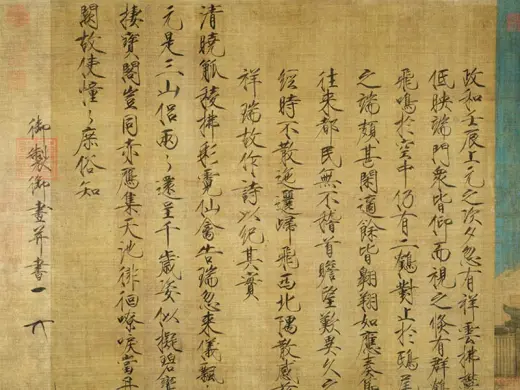 政和壬辰上元之次夕忽有祥雲拂鬱
低映端門衆皆仰而視之倏有群
飛鳴於空中仍有二鶴對止於鴟
之端頗甚閑適餘皆翱翔如應奏
往來都民無不稽首瞻望歎異久之
經時不散迤邐歸飛西北隅散感
祥瑞故作詩以紀其實
清曉觚稜拂彩霓仙禽告瑞忽來儀飄
元是三山侶兩〻還呈千歲姿似擬碧鸞
棲寶閣豈同赤鴈集天池徘徊嘹唳當丹
闕故使憧〻庶俗知
御製御畫并書